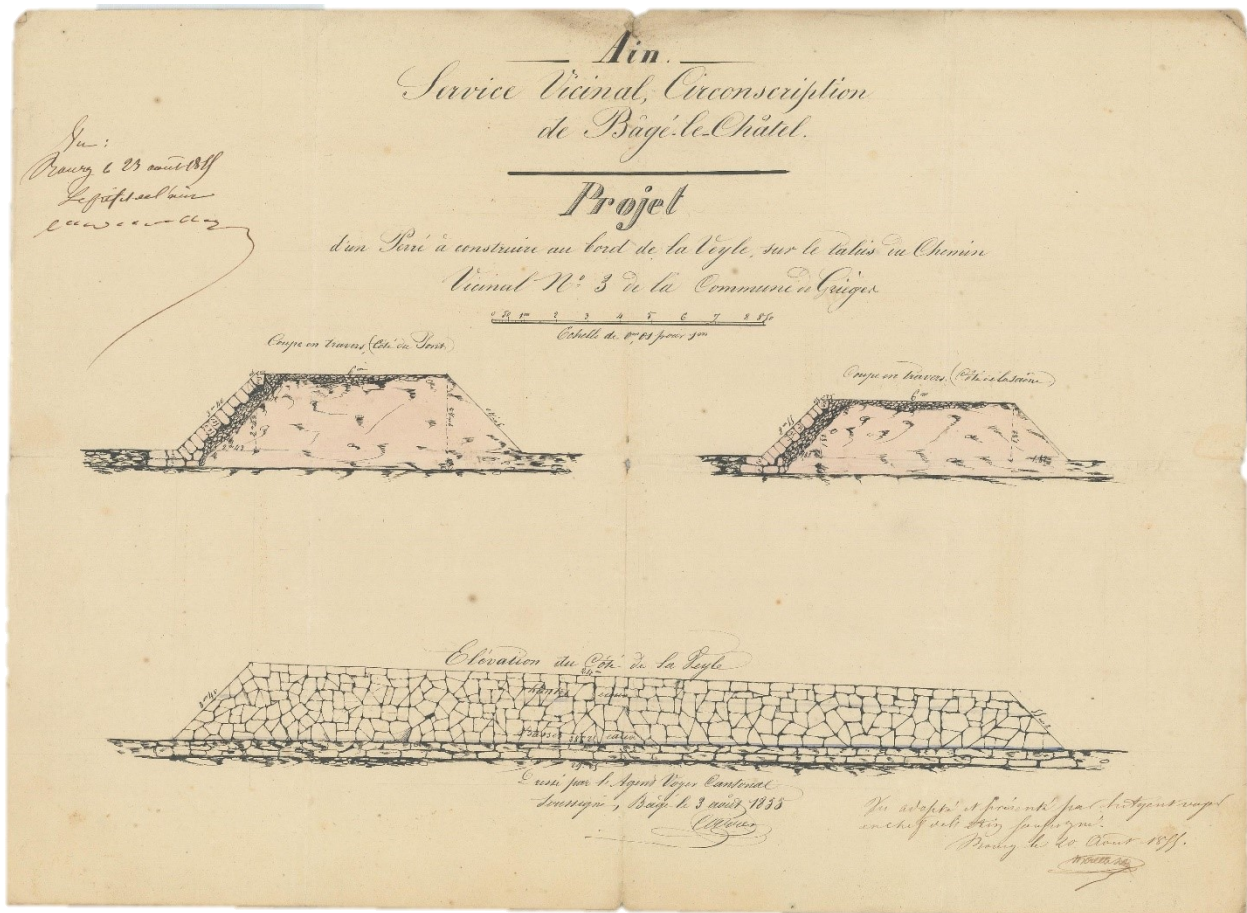 Ain.
Service Vicinal, Circonscription
de Bâgé-le-Châtel.
Vu:
Bourg le 23 août 1855
Le préfet de l'ain
Projet
d'un Perré à construire au bord de la Veyle, sur le talus du Chemin
Vicinal N° 3 de la Commune de Grièges
0 50 1m 2 3 4 5 6 7 8 8 50
Echelle de 0m,01 pour 1m
Coupe en travers, (Côté du Pont.)
6m
Coupe en travers, (Côté de la Saône)
6m
Elévation du Côté de la Veyle
Dressé par l'Agent Voyer Cantonal
Soussigné, Bâgé le 3 août 1855
Vu adopté et présenté par l'agent voyer
en chef de l'Ain soussigné.
Bourg le 20 Août 1855.